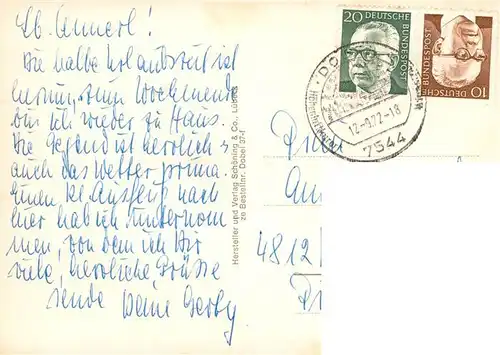 Lb. Annerl!
Die halbe Urlaubszeit ist
herum, zum Wochenende
bin ich wieder zu Haus.
Die Gegend ist herrlich &
auch das Wetter prima.
Einen kl. Ausflug nach
hier hab ich unternom
men, von dem ich Dir
viele, herrliche Grüsse
sende Deine Gerby
Hersteller und Verlag Schöning & Co., Lübeck
zu Bestellnr. Dobel 37-f
20
DEUTSCHE
BUNDESPOST
10
DEUTSCHE
BUNDESPOST
12.-9.72-18
7544
4812